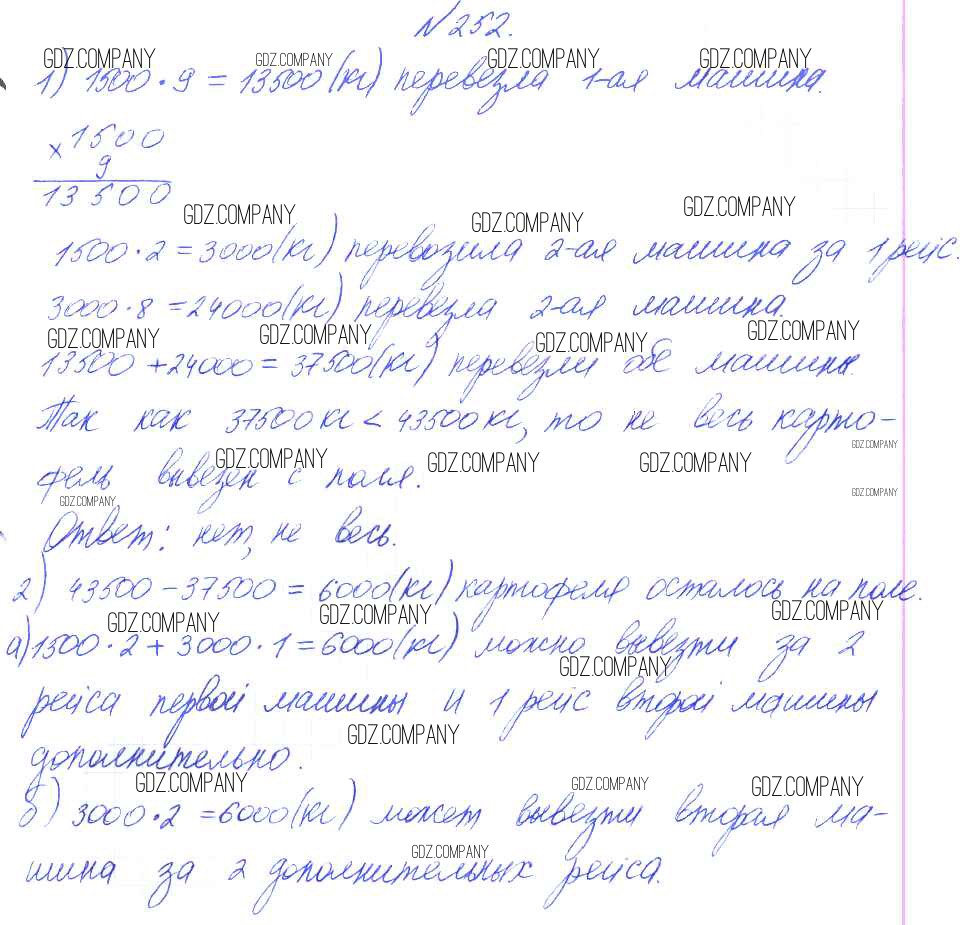 №252.
GDZ.COMPANY GDZ.COMPANY GDZ.COMPANY GDZ.COMPANY
1) 1500 · 9 = 13500 (кг) перевезла 1-ая машина.
× 1500
9
13500
GDZ.COMPANY GDZ.COMPANY GDZ.COMPANY
1500 · 2 = 3000 (кг) перевозила 2-ая машина за 1 рейс.
3000 · 8 = 24000 (кг) перевезла 2-ая машина.
GDZ.COMPANY GDZ.COMPANY GDZ.COMPANY GDZ.COMPANY
13500 + 24000 = 37500 (кг) перевезли обе машины.
Так как 37500 кг < 43500 кг, то не весь карто-
GDZ.COMPANY
GDZ.COMPANY GDZ.COMPANY GDZ.COMPANY
фель вывезен с поля.
GDZ.COMPANY GDZ.COMPANY
Ответ: нет, не весь.
2) 43500 - 37500 = 6000 (кг) картофеля осталось на поле.
GDZ.COMPANY GDZ.COMPANY GDZ.COMPANY
а) 1500 · 2 + 3000 · 1 = 6000 (кг) можно вывезти за 2
GDZ.COMPANY
рейса первой машины и 1 рейс второй машины
GDZ.COMPANY
дополнительно.
GDZ.COMPANY GDZ.COMPANY GDZ.COMPANY
б) 3000 · 2 = 6000 (кг) может вывезти вторая ма-
GDZ.COMPANY
шина за 2 дополнительных рейса.